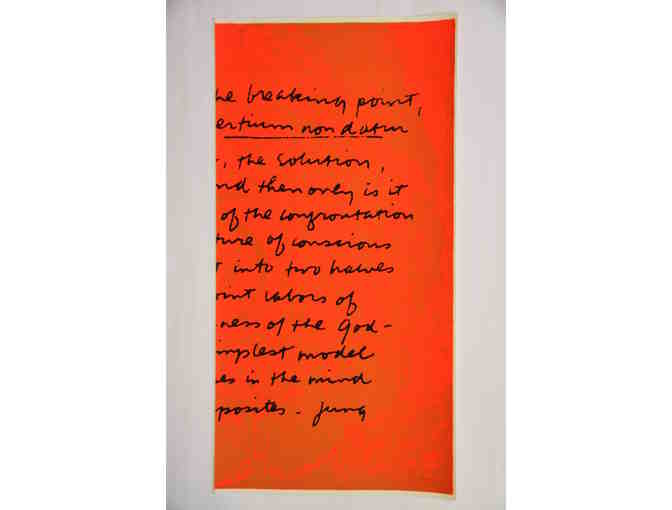 he breaking point,
ertium non datur
, the solution,
nd then only is it
of the confrontation
ture of conscious
into two halves
oint labors of
ness of the god-
implest model
es in the mind
pposites - Jung